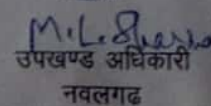 M.L. Sharma
उपखण्ड अधिकारी
नवलगढ